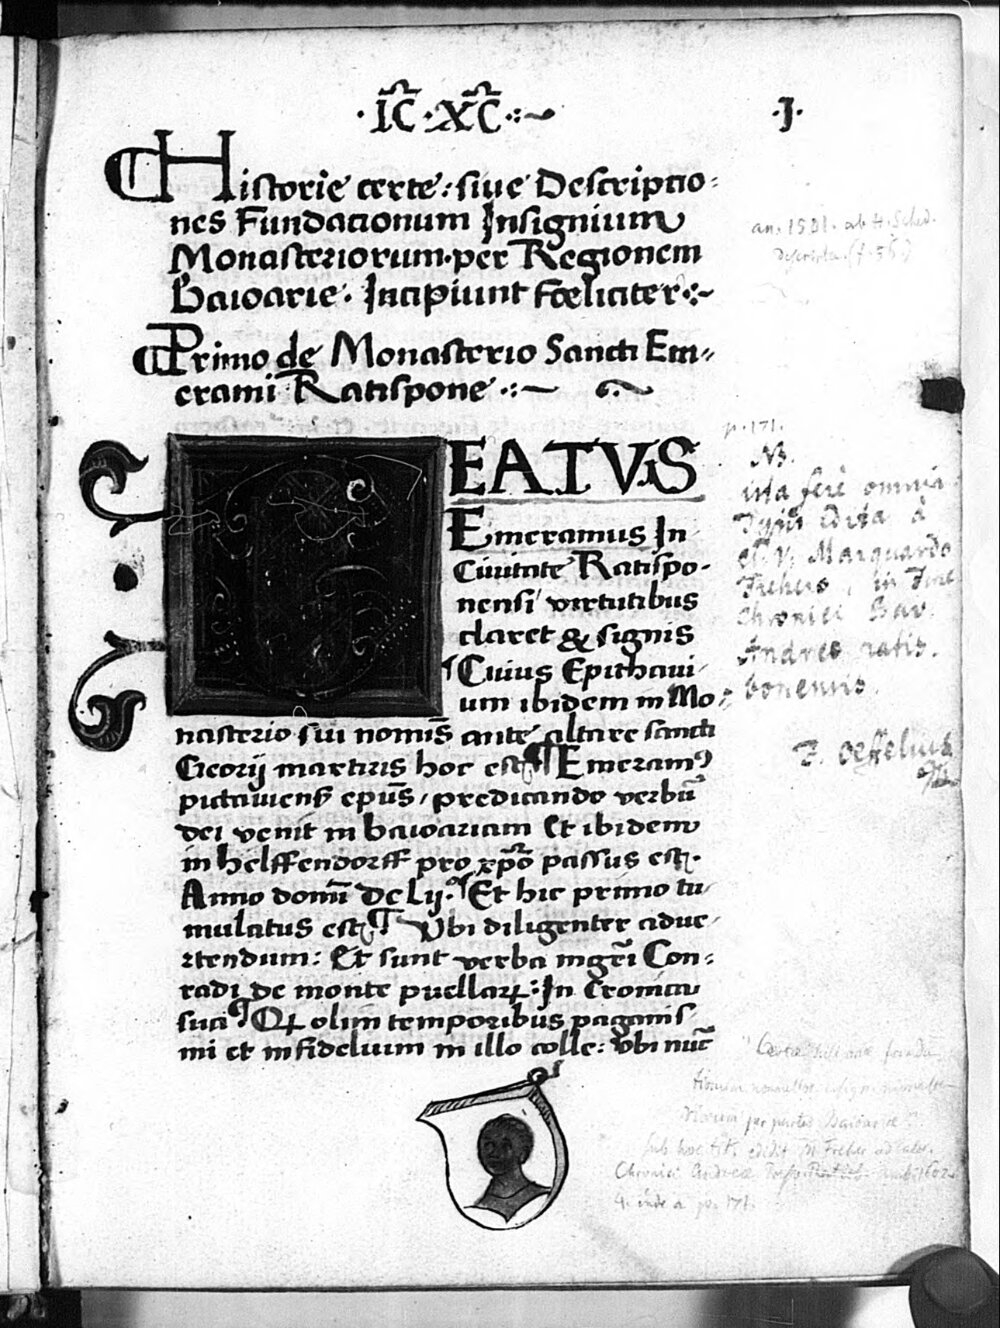 ·IC·XC·:~
·J·
Historie certe: siue Descriptio:
nes Fundacionum Insignium
Monasteriorum·per Regionem
Baioarie. Incipiunt Fœliciter:~
Primo de Monasterio Sancti Em-
erami Ratispone·:~
BEATVS
Emeramus In
Ciuitate Ratispo-
nensi virtutibus
claret & signis
Cuius Epithaui-
um ibidem in Mo:
nasterio sui nomīs ante altare sancti
Georij martiris hoc est Emeram9
pictauiens epūs, predicando verbū
dei venit in baioariam Et ibidem
in helffendorff pro xpō passus est.
Anno domī DcLij. Et hic primo tu-
mulatus est Vbi diligenter aduer-
rtendum: Et sunt verba mgrī Con:
radi de monte puellarꝝ: In Cronica
sua Qꝛ olim temporibus paganis-
mi et infidelium in illo colle: vbi nūc
an. 1501. ab H. Sched.
p. 171.
NB.
ista ferè omnia
Typis edita à
cl. V. Marquardo
Frehero, in Fine
Chronici Bav.
Andreæ ratis.
bonensis.
F. Oeffelius
sub hoc tit. edidit M Freher ad calc.
Chronici Andreæ 1602
4. inde a p. 171.